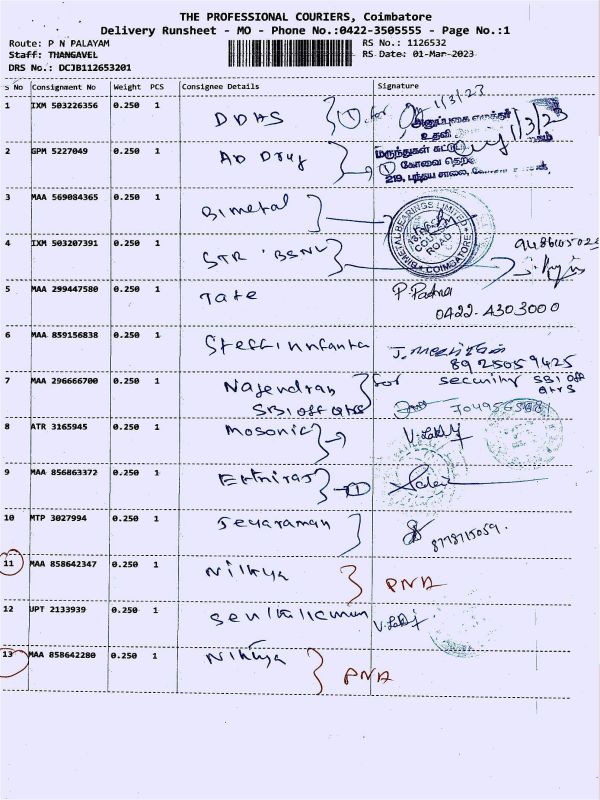 THE PROFESSIONAL COURIERS, Coimbatore
Delivery Runsheet - MO - Phone No.:0422-3505555 - Page No.:1
Route: P N PALAYAM
RS No.: 1126532
Staff: THANGAVEL
RS Date: 01-Mar-2023
DRS No.: DCJB112653201
s No Consignment No Weight PCS Consignee Details Signature
1 IXM 503226356 0.250 1 DDHS 1 for 1/3/23
உதவி
2 GPM 5227049 0.250 1 AD Drug
மருந்துகள் கட்டு
1 கோவை
219, பந்தய சாலை,
3 MAA 569084365 0.250 1 Bimetal
BIMETAL BEARINGS LIMITED
COIMBATORE
4 IXM 503207391 0.250 1 STR BSNL
5 MAA 299447580 0.250 1 Tate P. Padma
0422-4303000
6 MAA 859156838 0.250 1 Steffinnfanta
8925059425
7 MAA 296666700 0.250 1 Nagendran for security SBI off
SBI off Qtrs Qtrs
8 ATR 3165945 0.250 1 Mosonic
9 MAA 856863372 0.250 1 1
10 MTP 3027994 0.250 1 Jeyaraman
8778715059.
11 MAA 858642347 0.250 1 Nithya PNA
12 UPT 2133939 0.250 1
13 MAA 858642280 0.250 1 Nithya PNA